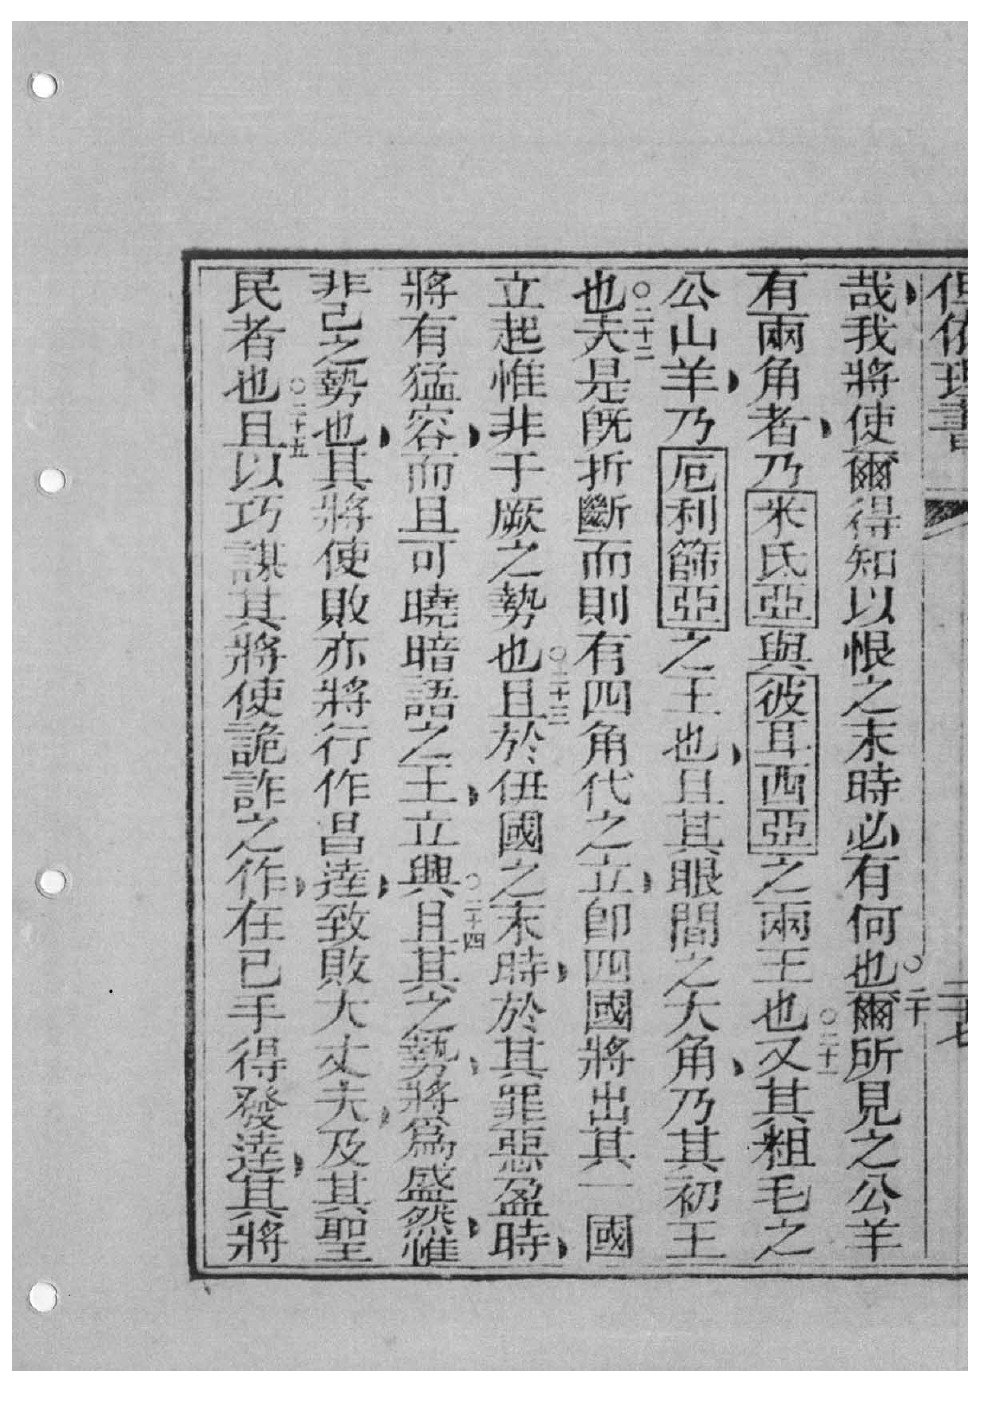 但依理書 二七
哉我將使爾得知以恨之末時必有何也○二十爾所見之公羊
有兩角者乃米氏亞與彼耳西亞之兩王也○二十一又其粗毛之
公山羊乃厄利篩亞之王也且其眼間之大角乃其初王
也○二十二夫是旣折斷而則有四角代之立卽四國將出其一國
立起惟非于厥之勢也○二十三且於伊國之末時於其罪惡盈時
將有猛容而且可曉暗語之王立興○二十四且其之勢將爲盛然惟
非己之勢也其將使敗亦將行作昌逹致敗大丈夫及其聖
民者也○二十五且以巧謀其將使詭詐之作在已手得發逹其將